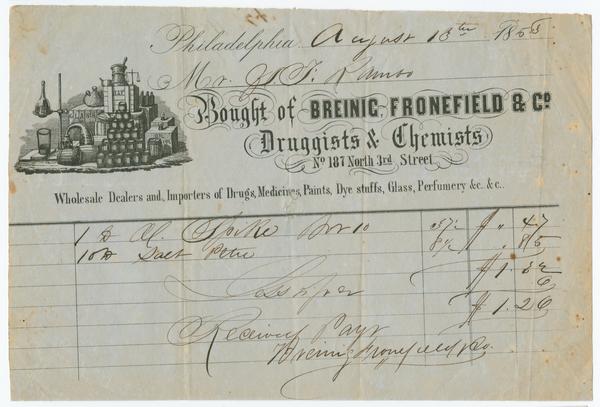 Philadelphia August 13th 1853
Mr. G. F. Rambo
Bought of BREINIG, FRONEFIELD & Co
Druggists & Chemists
No 187 North 3rd Street
Wholesale Dealers and, Importers of Drugs, Medicines, Paints, Dye stuffs, Glass, Perfumery &c. & c.
1 ℔ Box 10 37½ $ " 47
10 ℔ Salt Petre 8½ " 85
$ 1.32
Less 5 per 6
$ 1.26
Received Payt
Breinig Fronefield & Co.